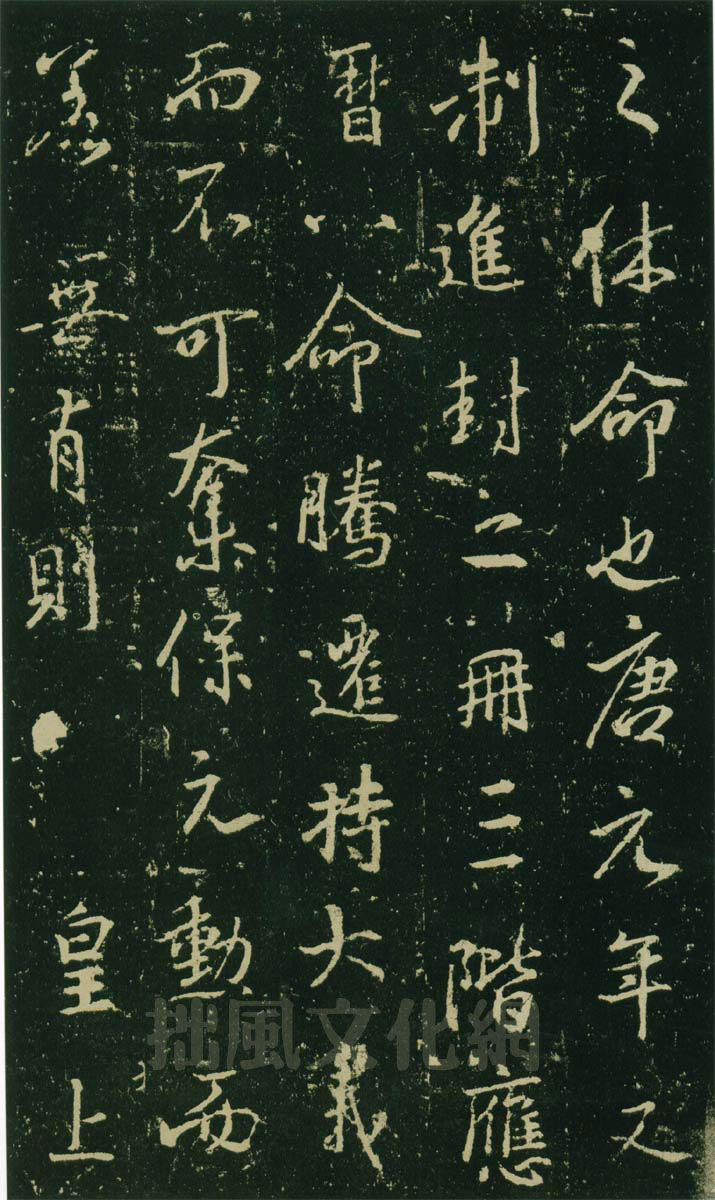 之休命也唐元年又
制進封二冊三階應
曆八命騰遷持大義
而不可奪保元勳而
善無有則皇上
拙風文化網